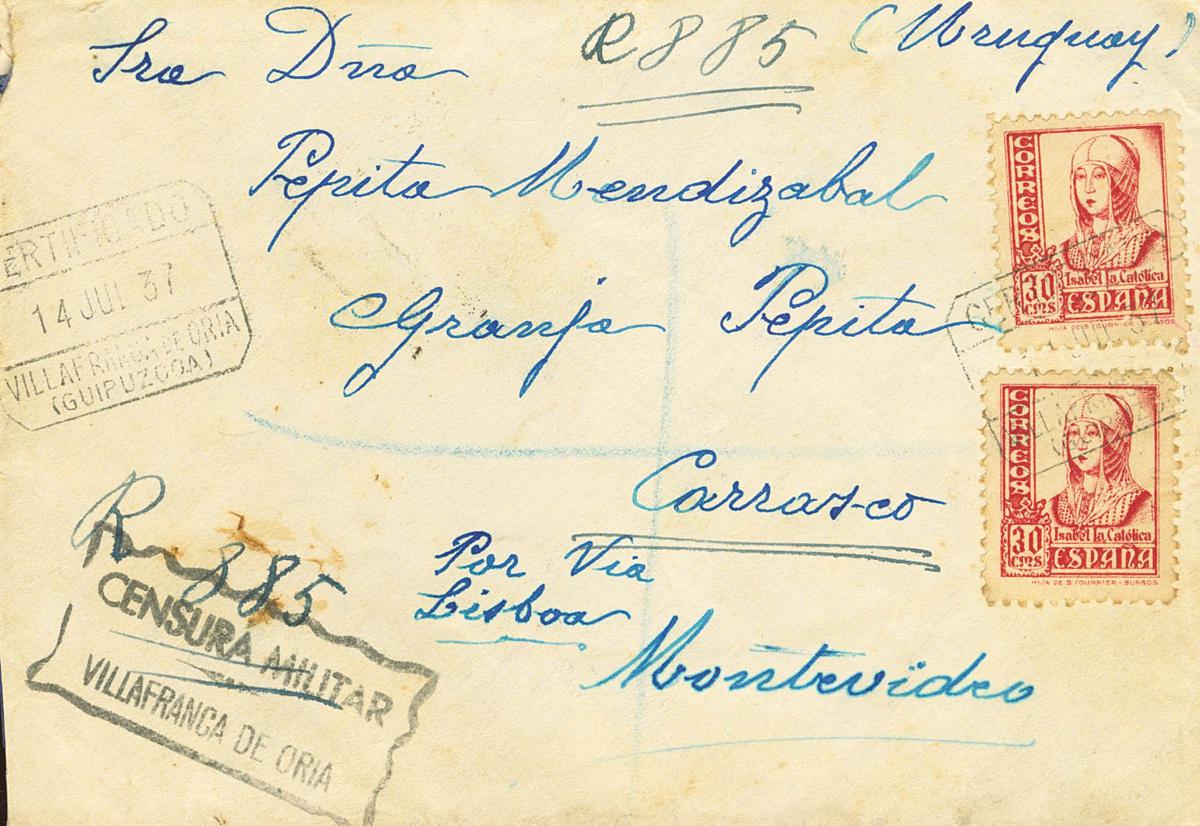 Sra Dña R 885 (Uruguay)
Pepita Mendizabal
Granja Pepita
Carrasco
Por Via
Lisboa
Montevideo
CERTIFICADO
14 JUL 37
VILLAFRANCA DE ORIA
(GUIPUZCOA)
R 885
CENSURA MILITAR
VILLAFRANCA DE ORIA
CORREOS
30
CMS
Isabel la Católica
ESPAÑA
HIJA DE B. FOURNIER - BURGOS
CORREOS
30
CMS
Isabel la Católica
ESPAÑA
HIJA DE B. FOURNIER - BURGOS